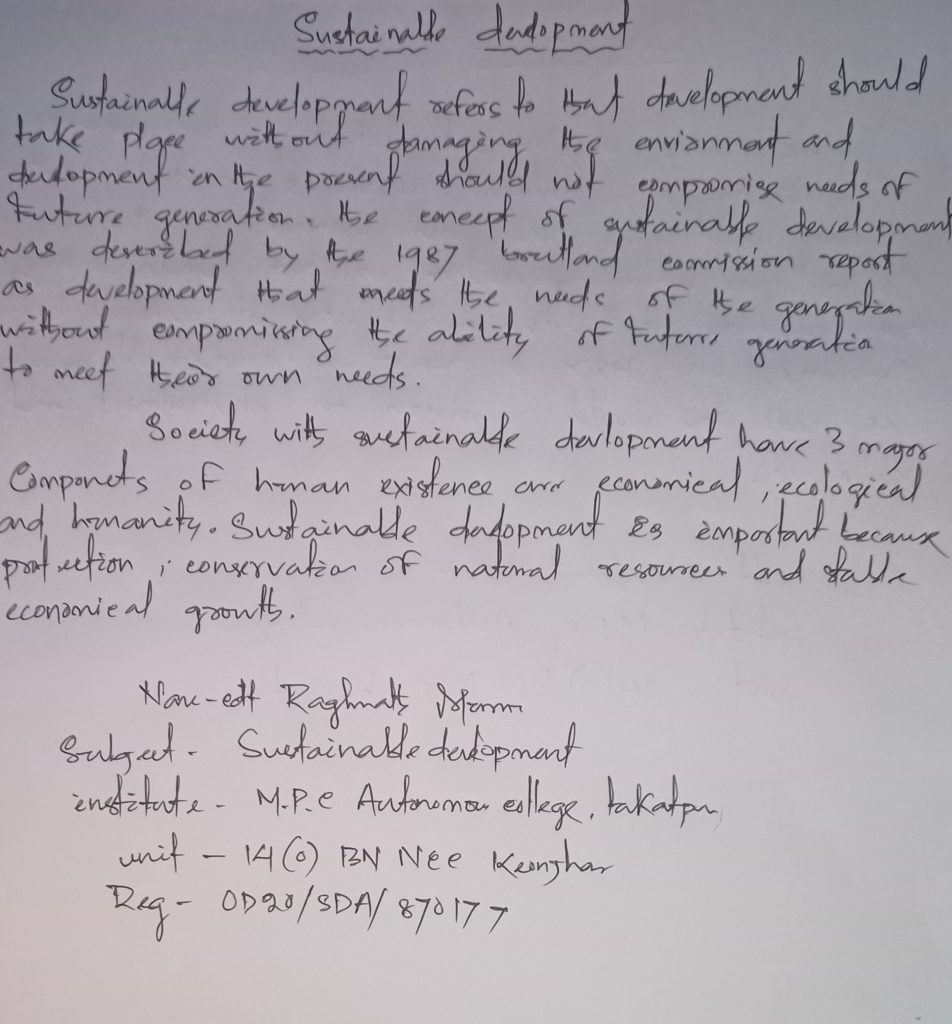 Sustainable development
Sustainable development refers to that development should
take place without damaging the envionment and
development in the present should not compromise needs of
Future generation. the concept of sustainable development
was described by the 1987 commission report
as development that meets the needs of the generation
without compromissing the ability of Future generation
to meet their own needs.
Society with sustainable devlopment have 3 major
Componets of human existence are economical, ecological
and humanity. Sustainable development is important because
protection, conservation of natural resources and stable
economical growth.
Raghunath
Subject - Sustainable development
institute - M.P.C Autonomou college, takatpur
unit - 14 (O) BN Nee Keonjhar
Reg - OD20/SDA/870177